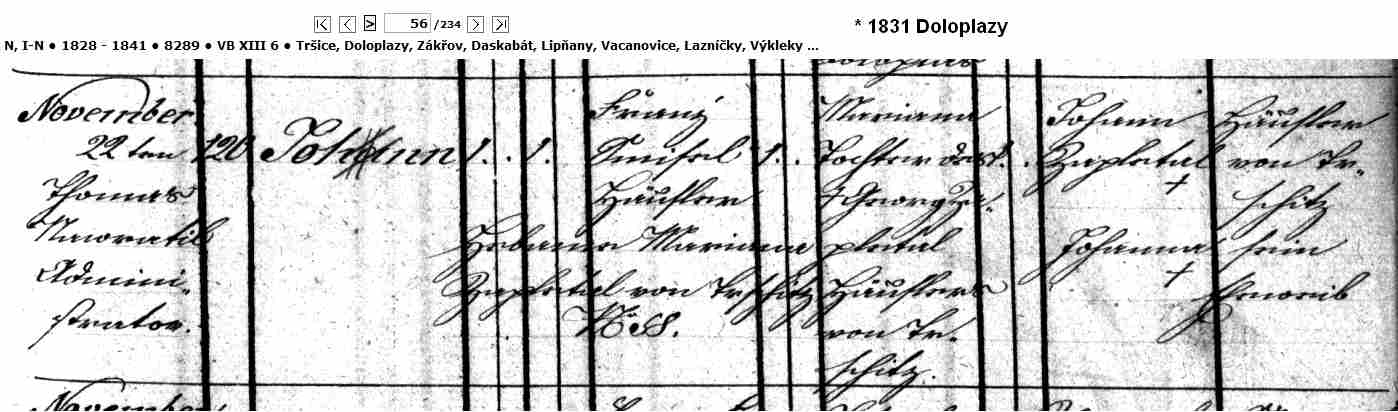 56 /234
* 1831 Doloplazy
N, I-N ● 1828 - 1841 ● 8289 ● VB XIII 6 ● Tršice, Doloplazy, Zákřov, Daskabát, Lipňany, Vacanovice, Lazníčky, Výkleky ...
November
22 ten
Thomas
Nawratil
Admini-
strator.
120
Johann
1. . 1.
Franz
Häusler
Hebame Mariana
Zapletal von Trschitz
N 58.
1. .
Mariana
Tochter des
Georg Za-
pletal
Häuslers
von Tr-
schitz.
1. .
Johann
Zapletal
+
Johanna
+
Häusler
von Tr-
schitz
sein
Eheweib
November